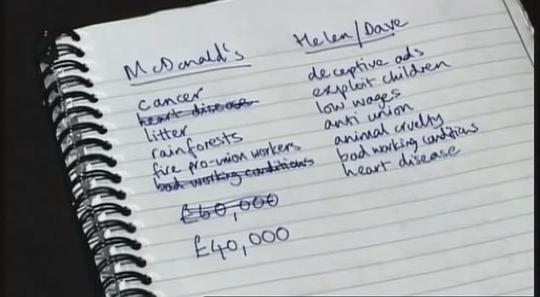 McDonald's
cancer
heart disease
litter
rainforests
fire pro-union workers
bad working conditions
£60,000
£40,000
Helen/Dave
deceptive ads
exploit children
low wages
anti union
animal cruelty
bad working conditions
heart disease